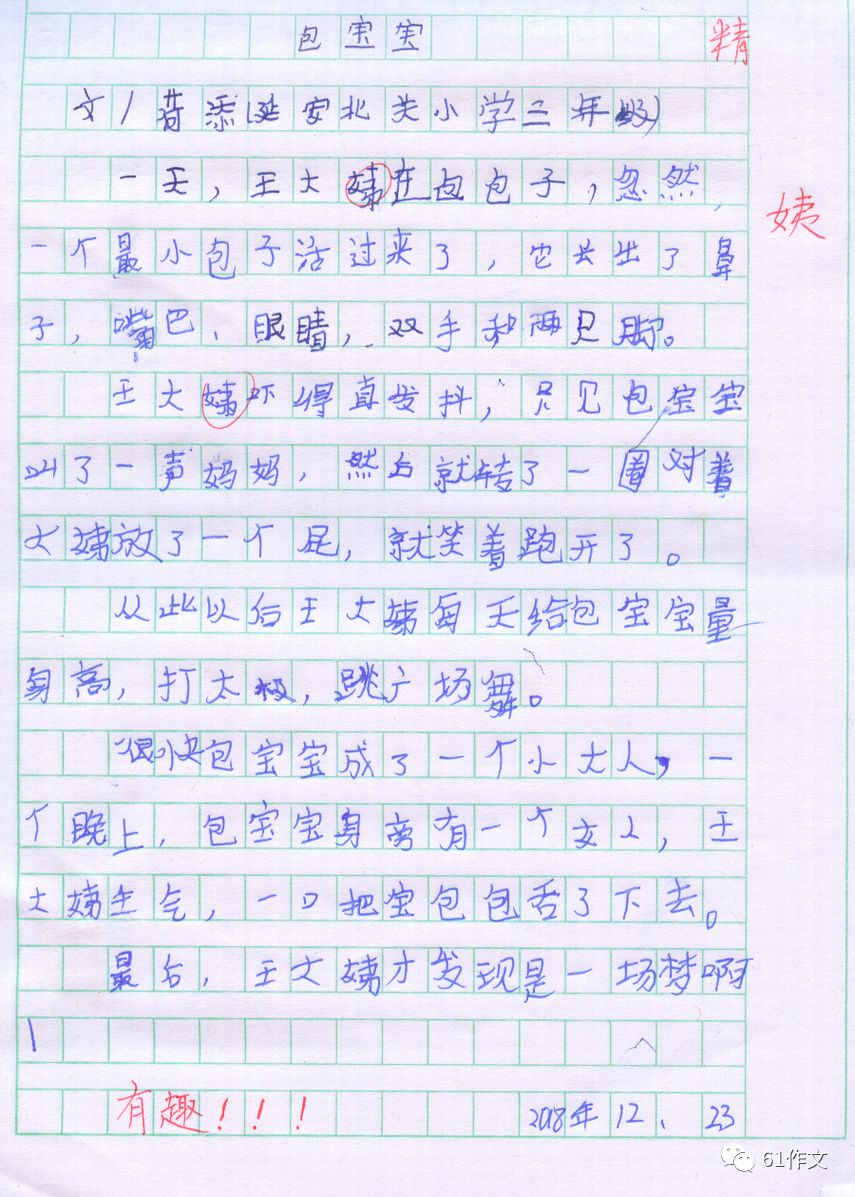 包宝宝 精
文/昔添(延安北关小学三年级)
一天,王大姨在包包子,忽然,
姨
一个最小包子活过来了,它长出了鼻
子,嘴巴、眼睛,双手和两只脚。
王大姨吓得直发抖,只见包宝宝
叫了一声妈妈,然后就转了一圈对着
大姨放了一个屁,就笑着跑开了。
从此以后王大姨每天给包宝宝量
身高,打太极,跳广场舞。
很快包宝宝成了一个小大人,一
个晚上,包宝宝身旁有一个女人,王
大姨生气,一口把宝包包吞了下去。
最后,王大姨才发现是一场梦啊
!
有趣!!! 2018年12、23
61作文